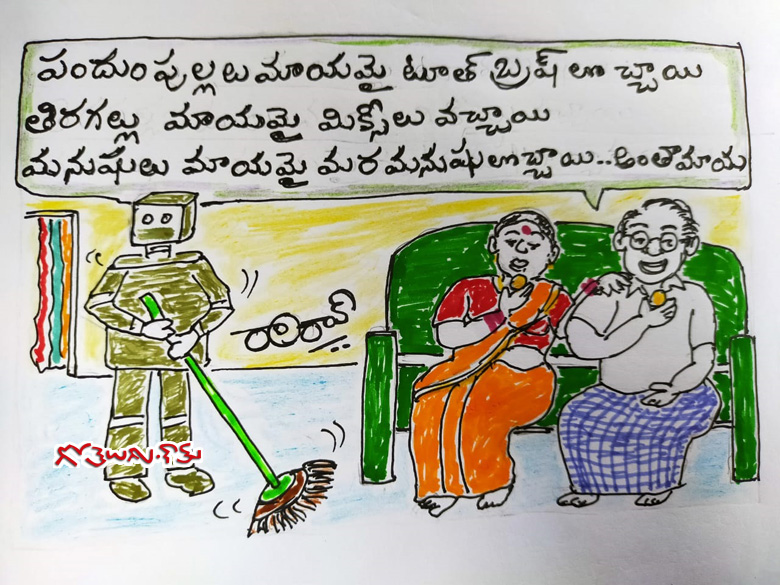 పందుంపుల్లలు మాయమై టూత్ బ్రష్ లొచ్చాయి
తిరగల్లు మాయమై మిక్సీలు వచ్చాయి
మనుషులు మాయమై మర మనుషులొచ్చాయి..అంతా మాయ
గోతెలుగు.కామ్